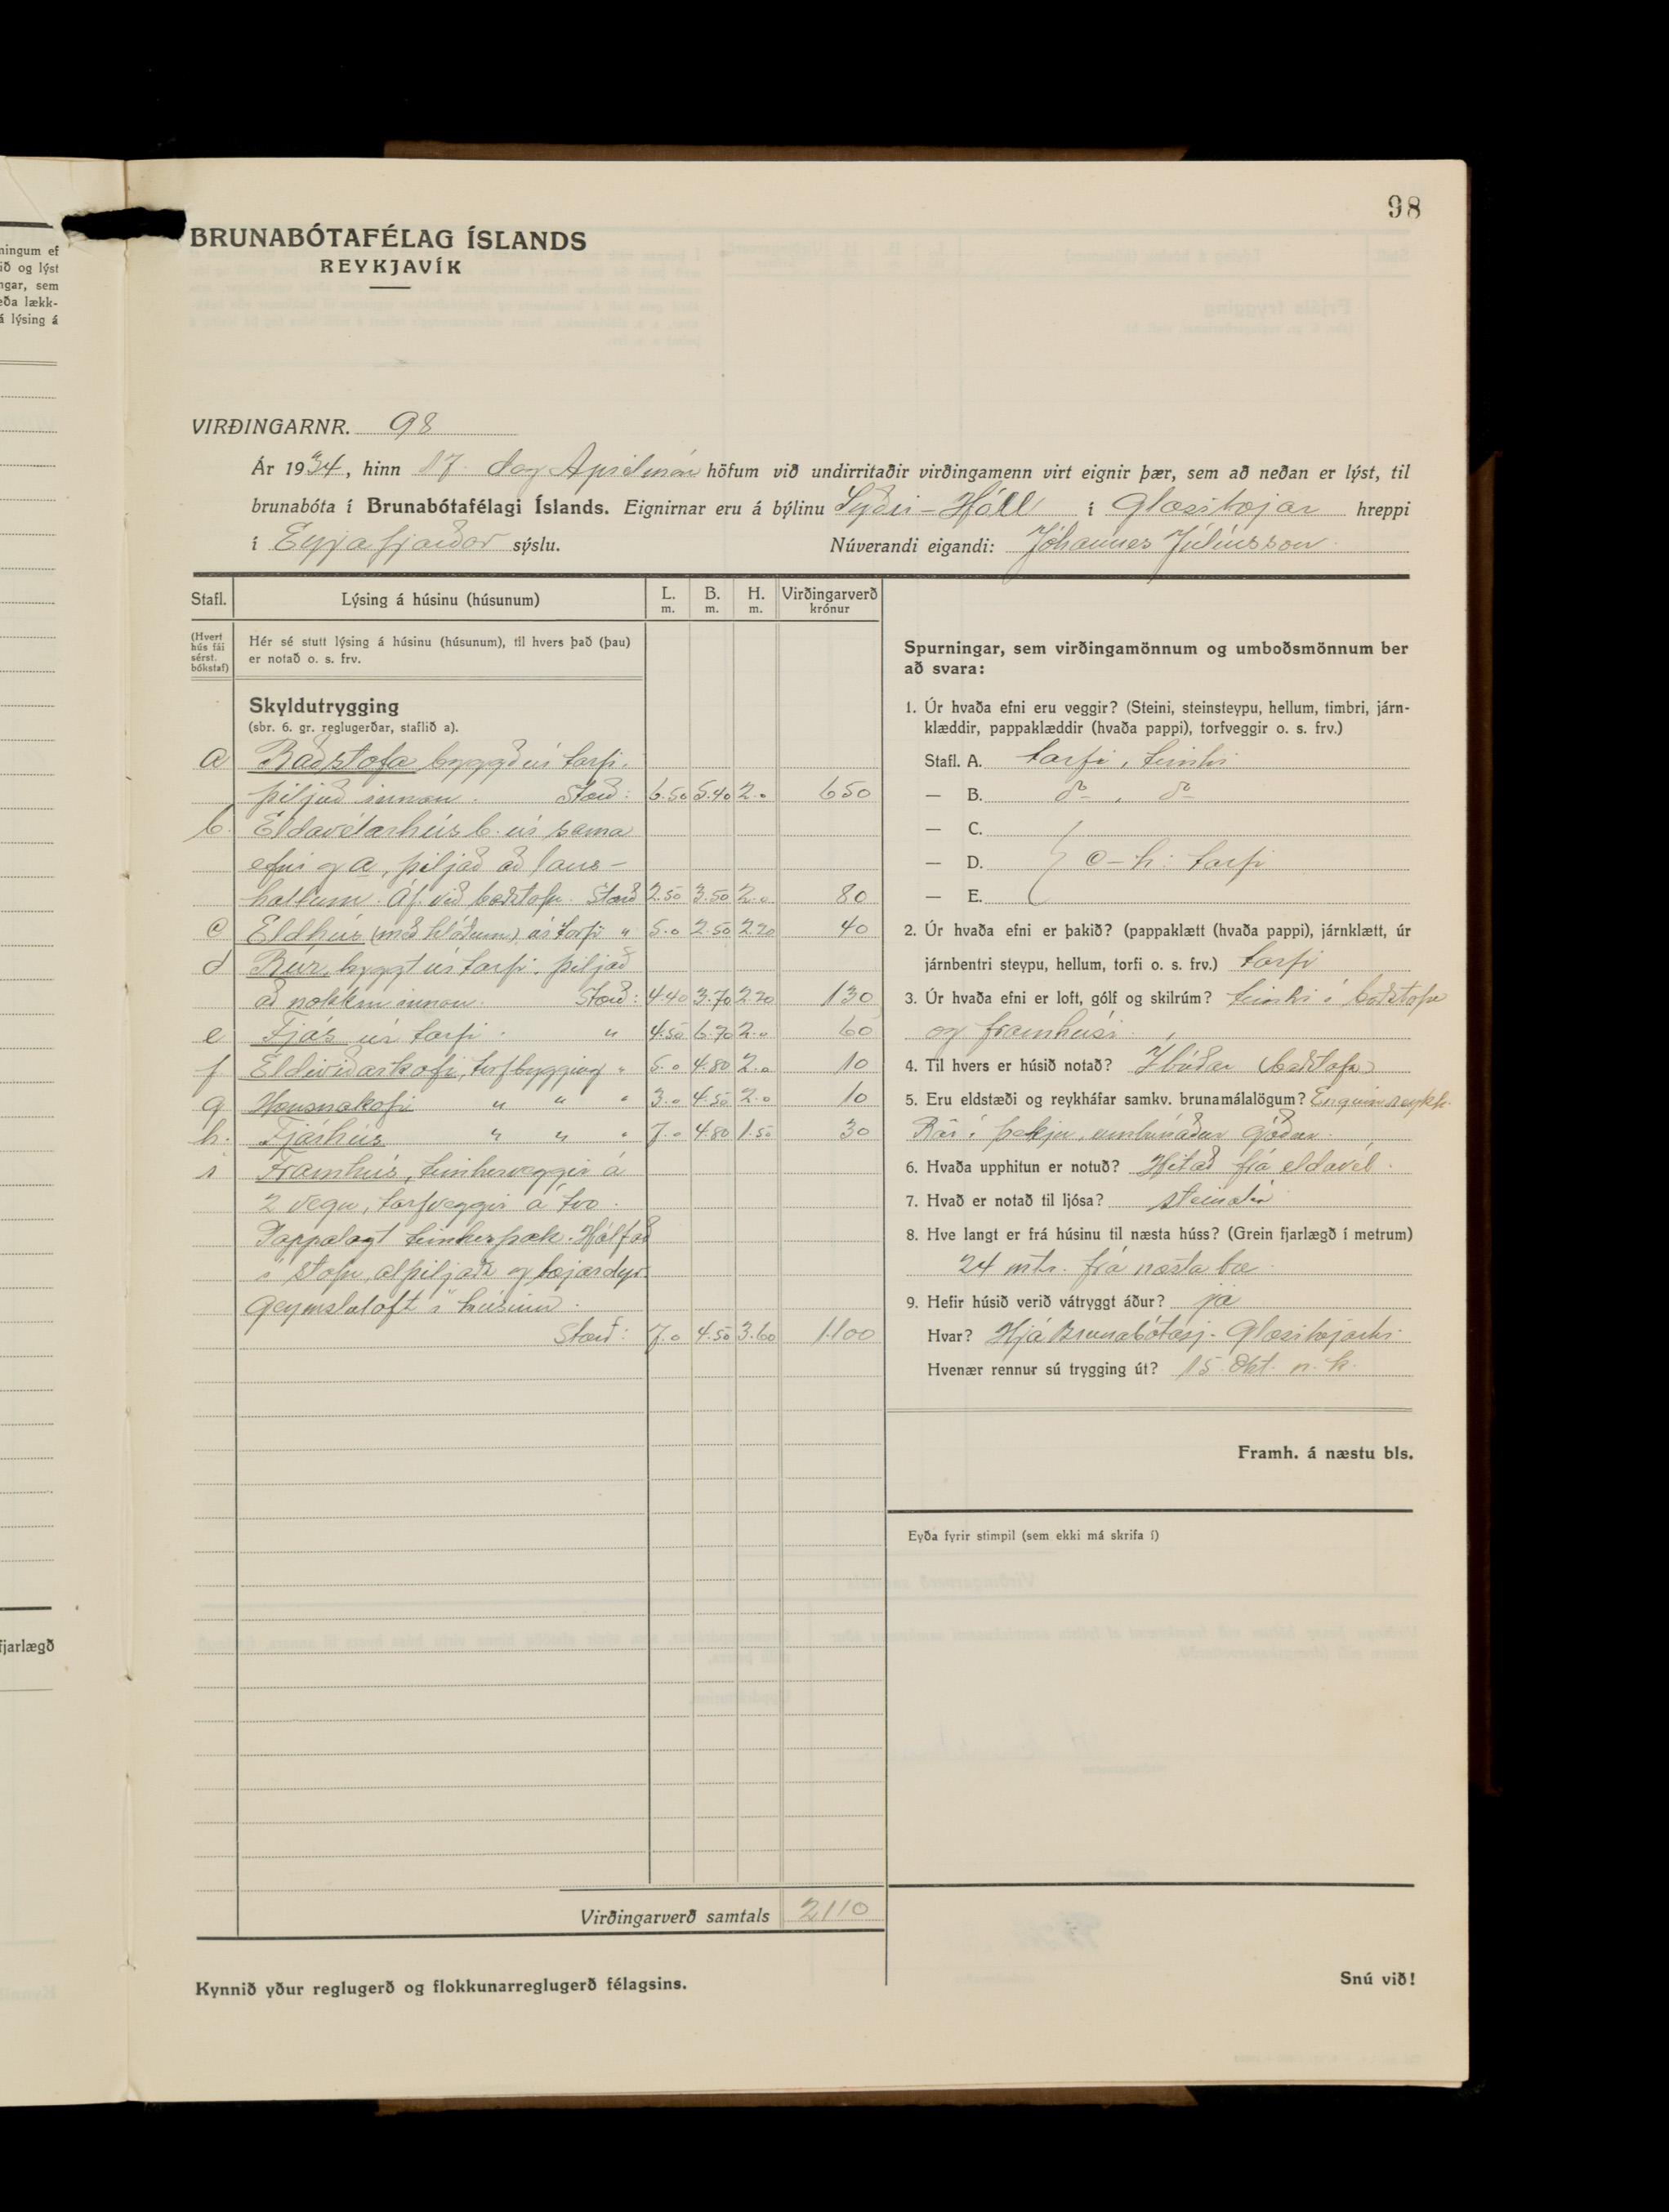 98
ningum ef
ið og lýst
ngar, sem
eða lækk-
á lýsing á
fjarlægð
BRUNABÓTAFÉLAG ÍSLANDS
REYKJAVÍK
VIRÐINGARNR. 98
Ár 1934, hinn 17. dag Aprílmán höfum við undirritaðir virðingamenn virt eignir þær, sem að neðan er lýst, til
brunabóta í Brunabótafélagi Íslands. Eignirnar eru á býlinu Syðri-Hóll í Glæsibæjar hreppi
í Eyjafjarðar sýslu. Núverandi eigandi: Jóhannes Júlíusson
Stafl. Lýsing á húsinu (húsunum) L. m. B. m. H. m. Virðingarverð krónur
(Hvert hús fái sérst. bókstaf)
Hér sé stutt lýsing á húsinu (húsunum), til hvers það (þau)
er notað o. s. frv.
Skyldutrygging
(sbr. 6. gr. reglugerðar, staflið a).
a Baðstofa byggð úr torfi,
þiljuð innan. Stærð: 6.50 5.40 2.0 650
b. Eldavélarhús b. úr sama
efni og a, þiljað að laus-
hollum. Áf. við baðstofu. Stærð 2.50 3.50 2.0 80
c Eldhús (með hlóðum) úr torfi " 5.0 2.50 2.20 40
d Búr, byggt úr torfi, þiljað
að nokkru innan. Stærð: 4.40 3.70 2.20 130
e Fjós úr torfi. " 4.50 6.70 2.0 60
f Eldiviðarkofi, torfbygging " 5.0 4.80 2.0 10
g Hænsnakofi " " " 3.0 4.50 2.0 10
h. Fjárhús " " " 7.0 4.80 1.50 30
i Framhús, timburveggir á
2 vegu, torfveggir á tvo.
Pappalagt timburþak. Hálfað
í stofu, alþiljaða og bæjardyr.
Geymsluloft í húsinu.
Stærð: 7.0 4.50 3.60 1100
Virðingarverð samtals 2110
Kynnið yður reglugerð og flokkunarreglugerð félagsins.
Spurningar, sem virðingamönnum og umboðsmönnum ber
að svara:
1. Úr hvaða efni eru veggir? (Steini, steinsteypu, hellum, timbri, járn-
klæddir, pappaklæddir (hvaða pappi), torfveggir o. s. frv.)
Stafl. A. torfi, timbri
— B. do, do
— C.
— D. c-h: torfi
— E.
2. Úr hvaða efni er þakið? (pappaklætt (hvaða pappi), járnklætt, úr
járnbentri steypu, hellum, torfi o. s. frv.) torfi
3. Úr hvaða efni er loft, gólf og skilrúm? timbri í baðstofu
og framhúsi.
4. Til hvers er húsið notað? Íbúðar (baðstofa)
5. Eru eldstæði og reykháfar samkv. brunamálalögum? Enginn reykh.
Rör í þekju, umbúnaður góður.
6. Hvaða upphitun er notuð? Hitað frá eldavél.
7. Hvað er notað til ljósa? steinolía
8. Hve langt er frá húsinu til næsta húss? (Grein fjarlægð í metrum)
24 mtr. frá næsta bæ
9. Hefir húsið verið vátryggt áður? já
Hvar? Hjá Brunabótasj. Glæsibæjarhr.
Hvenær rennur sú trygging út? 15. Okt. n. k.
Framh. á næstu bls.
Eyða fyrir stimpil (sem ekki má skrifa í)
Snú við!